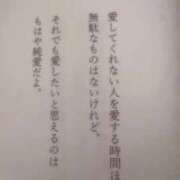 愛してくれない人を愛する時間ほ
無駄なものはないけれど。
それでも愛したいと思えるのは
もはや純愛だよ。